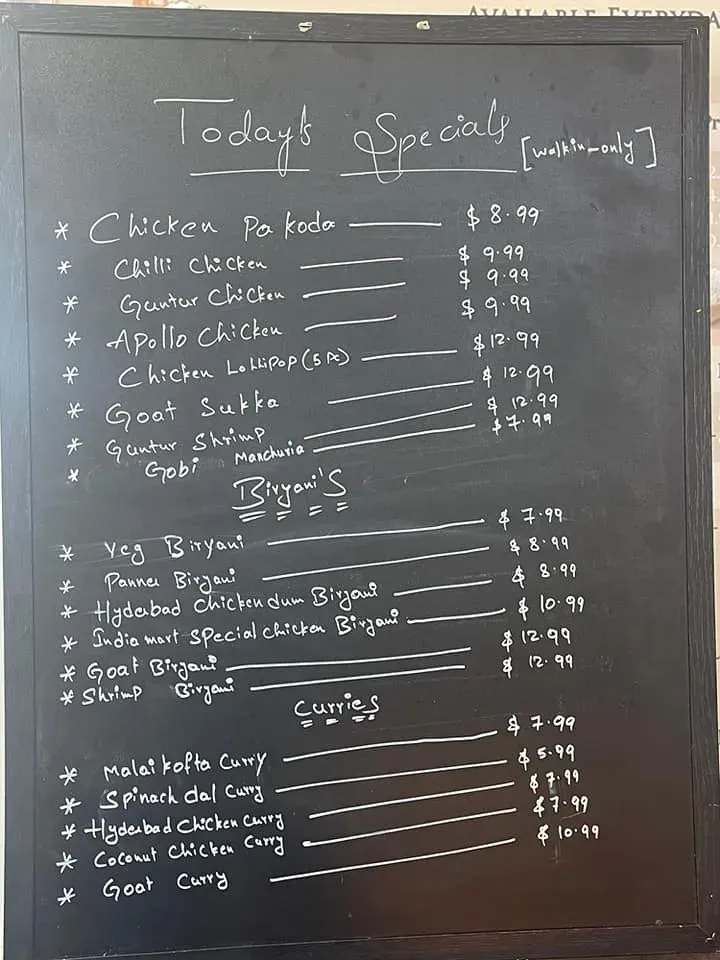 AVAILABLE EVERYDA
Today's Specials [walkin-only]
* Chicken Pakoda $ 8.99
* Chilli Chicken $ 9.99
* Guntur Chicken $ 9.99
* Apollo Chicken $ 9.99
* Chicken Lollipop (5 Pc) $12.99
* Goat Sukka $ 12.99
* Guntur Shrimp $ 12.99
* Gobi Manchuria $7.99
Biryani's
* Veg Biryani $ 7.99
* Panner Biryani $ 8.99
* Hyderbad Chicken dum Biryani $ 8.99
* India mart special chicken Biryani $ 10.99
* Goat Biryani $12.99
* Shrimp Biryani $ 12.99
Curries
* Malai kofta Curry $ 7.99
* Spinach dal Curry $ 5.99
* Hyderbad Chicken Curry $ 7.99
* Coconut Chicken Curry $ 7.99
* Goat Curry $ 10.99